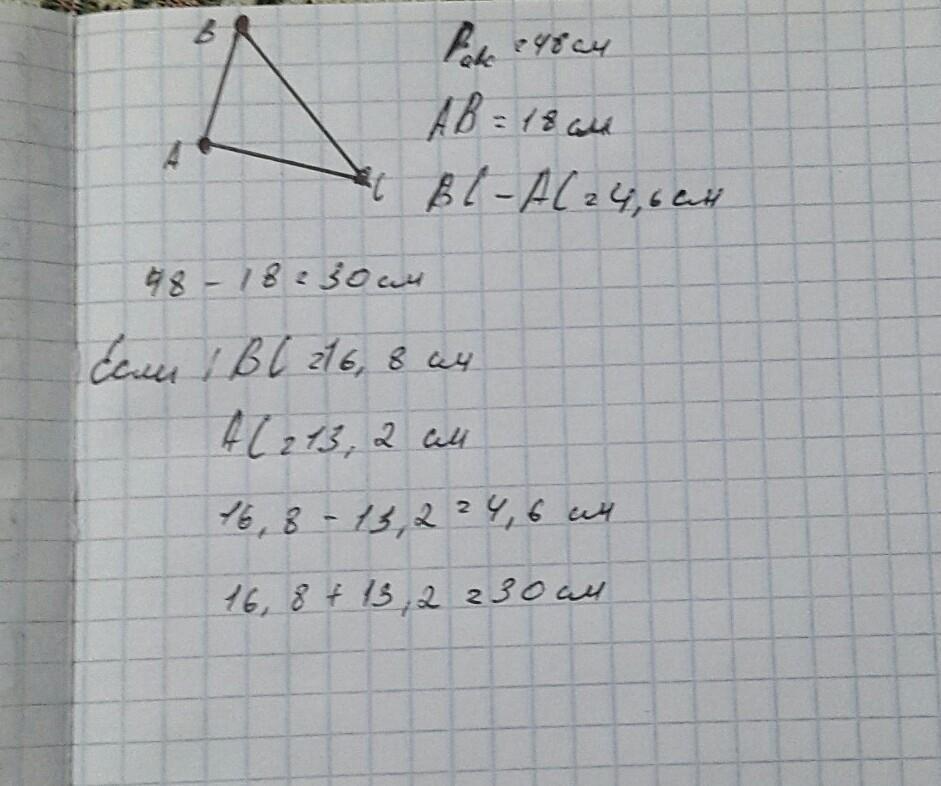 B
P авс = 48 см
AB = 18 см
A
C
BC - AC = 4,6 см
48 - 18 = 30 см
Если BC = 16,8 см
AC = 13,2 см
16,8 - 13,2 = 4,6 см
16,8 + 13,2 = 30 см